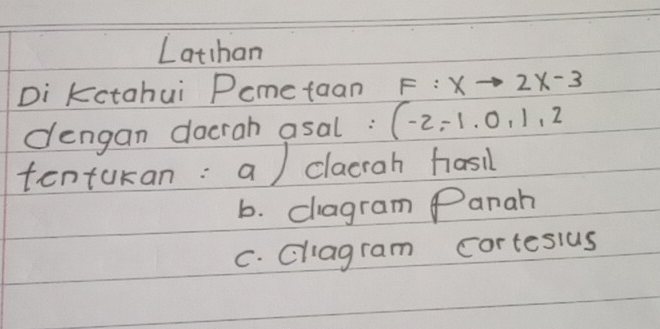 Latihan
Di Ketahui Pemetaan F : X → 2X-3
dengan daerah asal : (-2,-1.0,1,2
tentukan : a) daerah hasil
b. diagram Panah
c. diagram cartesius